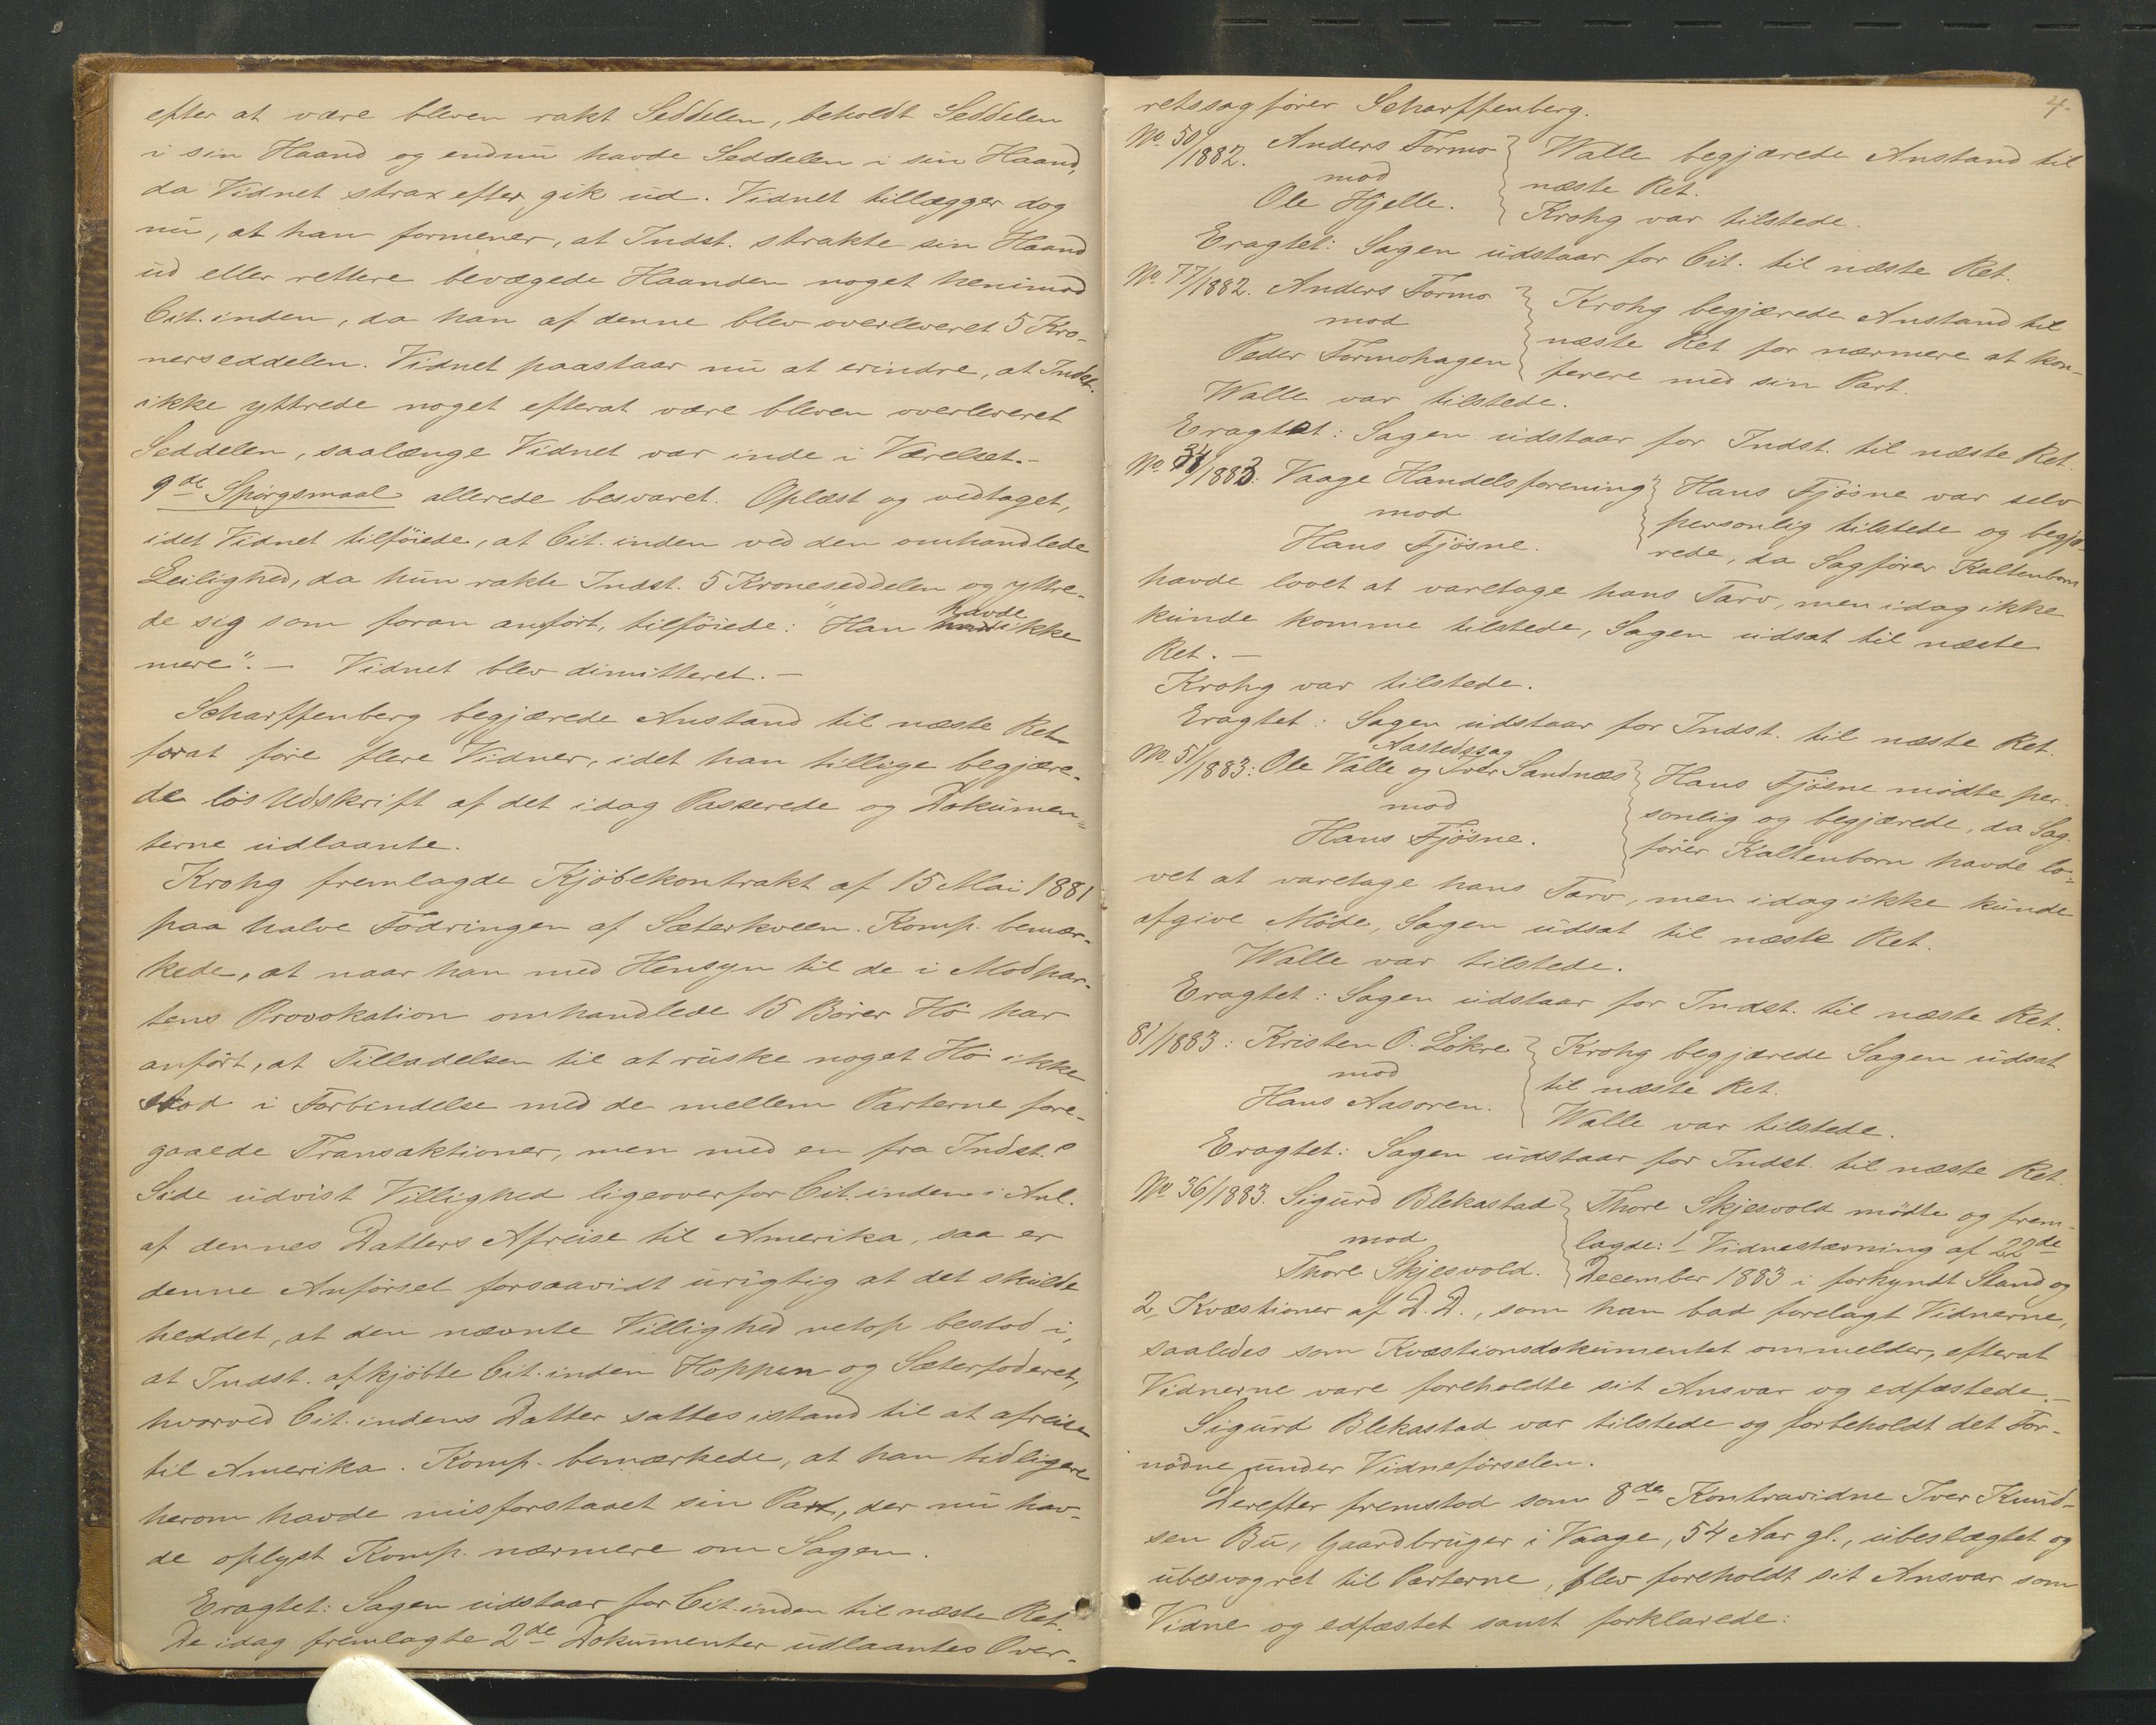 efter at være bleven rakt Seddelen, beholdt Seddelen
i sin Haand og endnu havde Seddelen i sin Haand,
da Vidnet strax efter gik ud. Vidnet tillægger dog
nu, at han formener, at Indst. strakte sin Haand
ud eller rettere bevægede Haanden noget henimod
Cit.inden, da han af denne blev overleveret 5 Kro-
nerseddelen. Vidnet paastaar nu at erindre, at Indst.
ikke yttrede noget efterat være bleven overleveret
Seddelen, saalænge Vidnet var inde i Værelset.-
9de Spørgsmaal allerede besvaret. Oplæst og vedtaget,
idet Vidnet tilføiede, at Cit.inden ved den omhandlede
Leilighed, da hun rakte Indst. 5 Kroneseddelen og yttre-
de sig som foran anført, tilføiede: "Han havde ikke
mere". - Vidnet blev dimitteret. -
Scharffenberg begjærede Anstand til næste Ret
forat føre flere Vidner, idet han tillige begjære-
de løs Udskrift af det idag Passerede og Dokumen-
terne udlaante.
Krohg fremlagde Kjöbekontrakt af 15 Mai 1881
paa halve Fodringen af Sæterkveen. Komp. bemær-
kede, at naar han med Hensyn til de i Modpar-
tens Provokation omhandlede 15 Bører Hö har
anført, at Tilladelsen til at ruske noget Hö ikke
stod i Forbindelse med de mellem Parterne fore-
gaaede Transaktioner, men med en fra Indst.s
Side udvist Villighed ligeoverfor Cit.inden i Anl.
af dennes Datters Afreise til Amerika, saa er
denne Anførsel forsaavidt urigtig at det skulde
heddet, at den nævnte Villighed netop bestod i,
at Indst. afkjöbte Cit.inden Hoppen og Sæterfoderet,
hvorved Cit.indens Datter sattes istand til at afreise
til Amerika. Komp. bemærkede, at han tidligere
herom havde misforstaaet sin Part, der nu hav-
de oplyst Komp. nærmere om Sagen.
Eragtet: Sagen udstaar for Cit.inden til næste Ret.
De idag fremlagte 2de Dokumenter udlaantes Over-
4.
retssagfører Scharffenberg.
No. 50/1882. Anders Formo
mod
Ole Hjelle.
Walle begjærede Anstand til
næste Ret.
Krohg var tilstede.
Eragtet: Sagen udstaar for Cit. til næste Ret.
No. 77/1882. Anders Formo
mod
Peder Formohagen
Krohg begjærede Anstand til
næste Ret for nærmere at kon-
ferere med sin Part.
Walle var tilstede.
Eragtet: Sagen udstaar for Indst. til næste Ret.
No. 34/1883: Vaage Handelsforening
mod
Hans Fjösne.
Hans Fjösne var selv
personlig tilstede og begjæ-
rede, da Sagfører Kaltenborn
havde lovet at varetage hans Tarv, men idag ikke
kunde komme tilstede, Sagen udsat til næste
Ret. -
Krohg var tilstede.
Eragtet: Sagen udstaar for Indst. til næste Ret.
Aastedssag
No. 51/1883: Ole Valle og Iver Sandnæs
mod
Hans Fjösne.
Hans Fjösne mødte per-
sonlig og begjærede, da Sag-
fører Kaltenborn havde lo-
vet at varetage hans Tarv, men idag ikke kunde
afgive Møde, Sagen udsat til næste Ret.
Walle var tilstede.
Eragtet: Sagen udstaar for Indst. til næste Ret.
81/1883: Kristen O. Lökre
mod
Hans Aasoren.
Krohg begjærede Sagen udsat
til næste Ret.
Walle var tilstede.
Eragtet: Sagen udstaar for Indst. til næste Ret.
No 36/1883. Sigurd Blekastad
mod
Thore Skjesvold.
Thore Skjesvold mødte og frem-
lagde: 1, Vidnestævning af 22de
December 1883 i forkyndt Stand og
2, Kvæstioner af D.D., som han bad forelagt Vidnerne,
saaledes som Kvæstionsdokumentet ommelder, efterat
Vidnerne vare foreholdte sit Ansvar og edfæstede.-
Sigurd Blekastad var tilstede og forbeholdt det For-
nødne under Vidneførselen.
Derefter fremstod som 8de Kontravidne Iver Knud-
sen Bu, Gaardbruger i Vaage, 54 Aar gl., ubeslægtet og
ubesvogret til Parterne, blev foreholdt sit Ansvar som
Vidne og edfæstet samt forklarede: